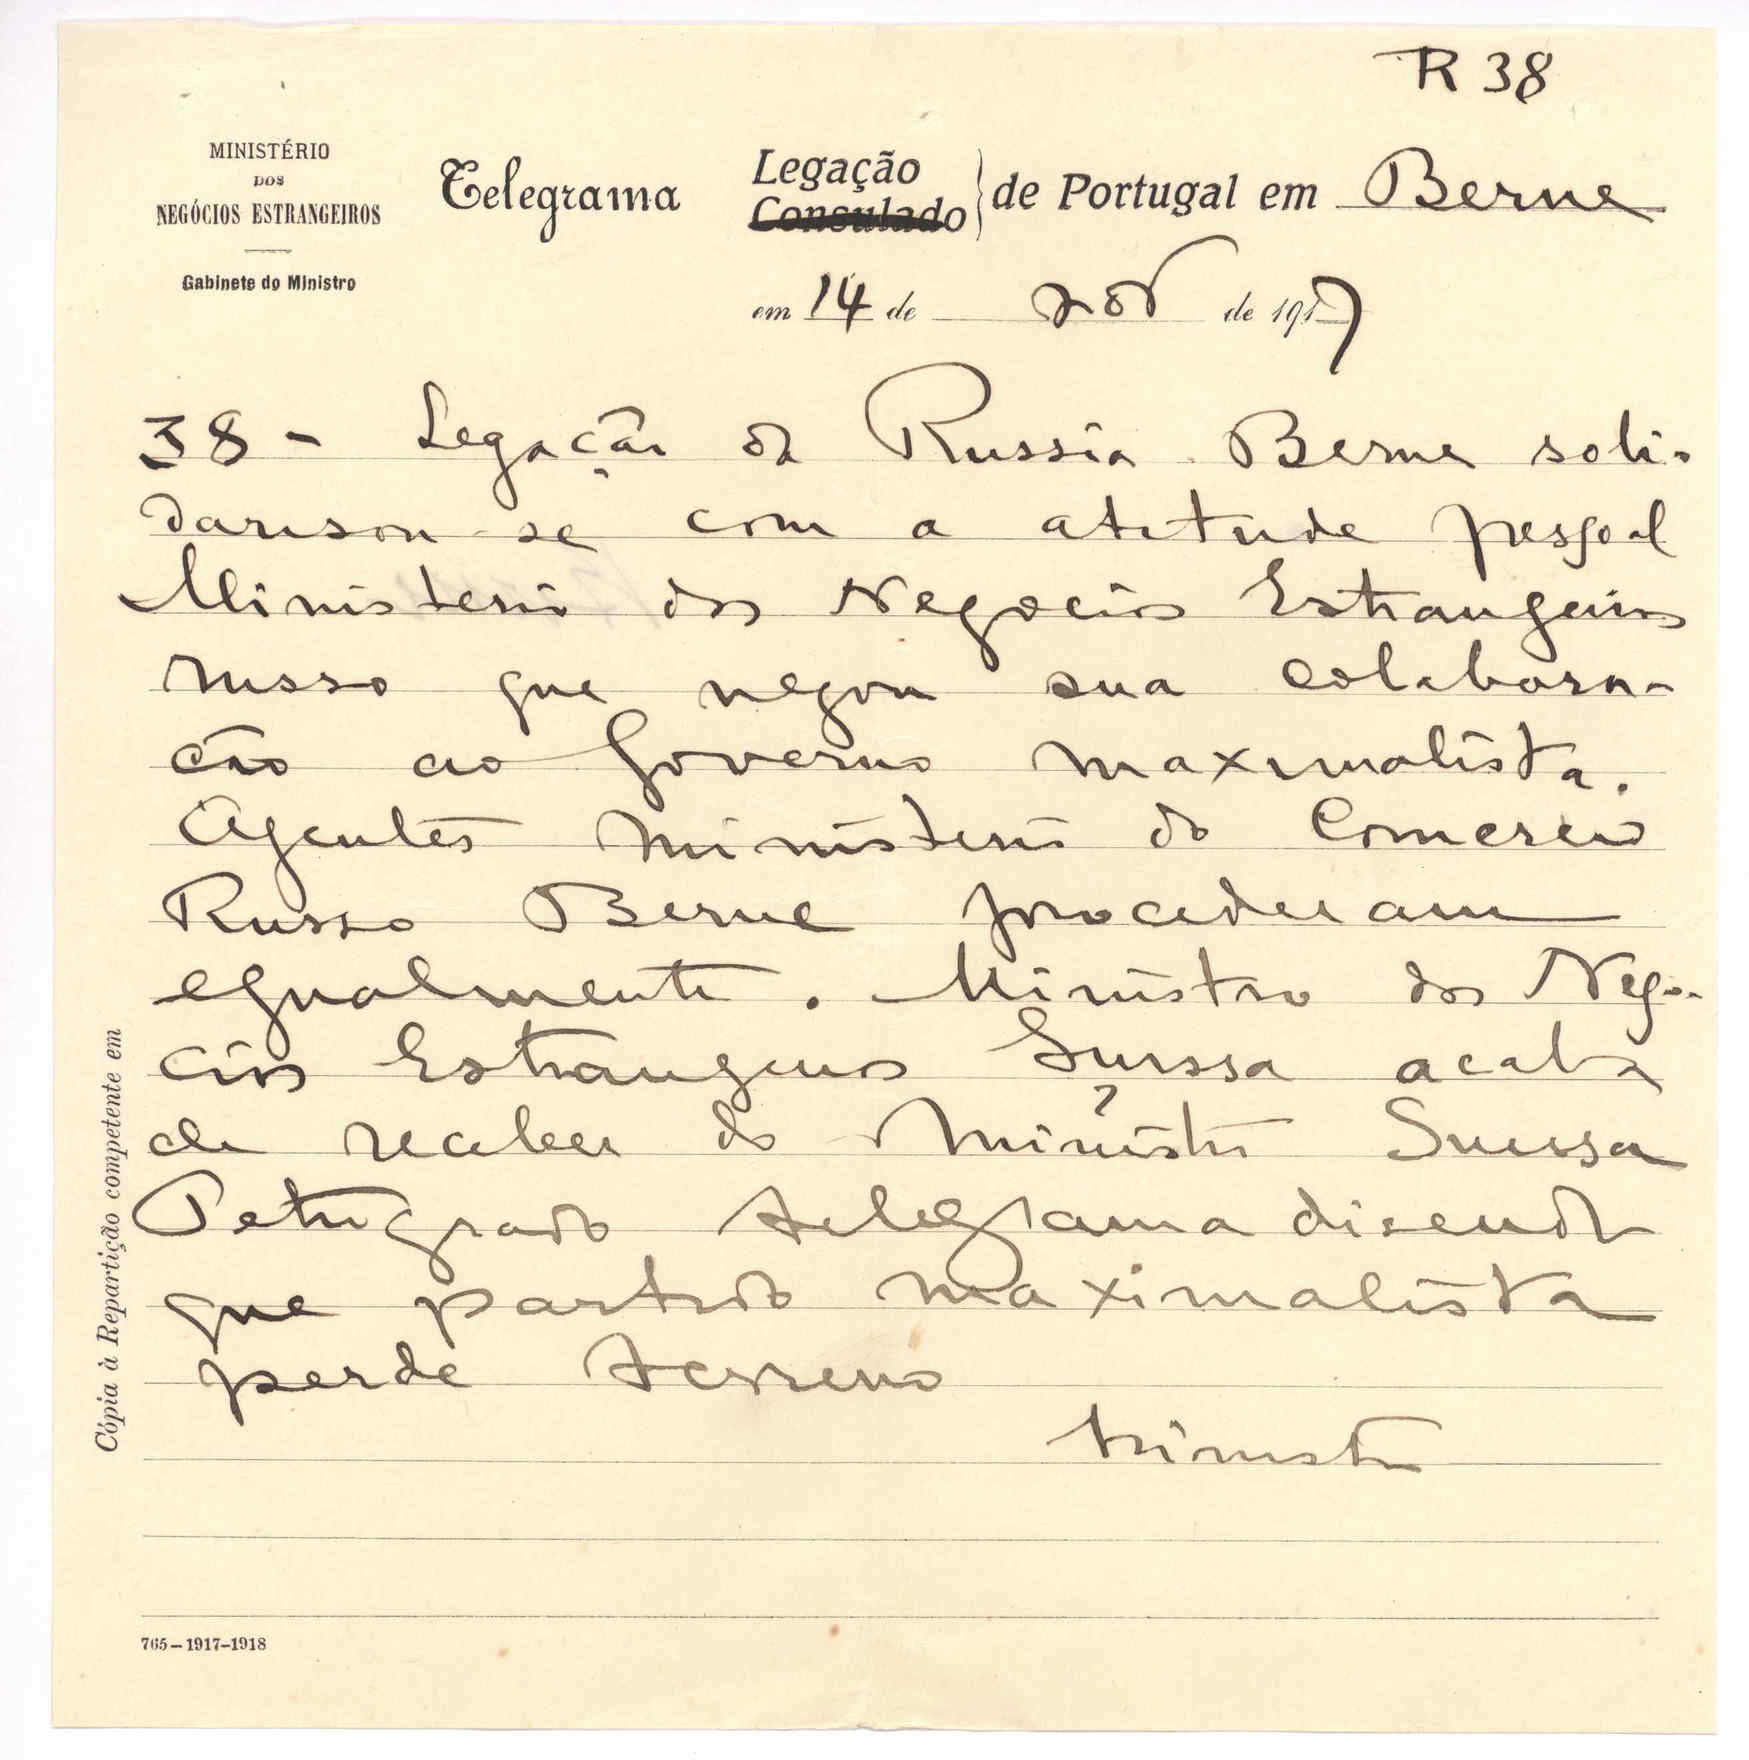 R 38
MINISTÉRIO
DOS
NEGÓCIOS ESTRANGEIROS
Gabinete do Ministro
Telegrama
Legação
Consulado
de Portugal em Berne
em 14 de nov de 1917
38 - Legação da Russia Berne soli-
darisou-se com a atitude pessoal
Ministerio dos Negocios Estrangeiros
russo que negou sua colabora-
ção ao Governo maximalista.
Agentes ministerio do Comercio
Russo Berne procederam
egualmente. Ministro dos Nego-
cios Estrangeiros Suissa acaba
de receber do Ministro Suissa
Petrogrado telegrama disendo
que partido maximalista
perde terreno
Ministro
Cópia à Repartição competente em
765–1917–1918